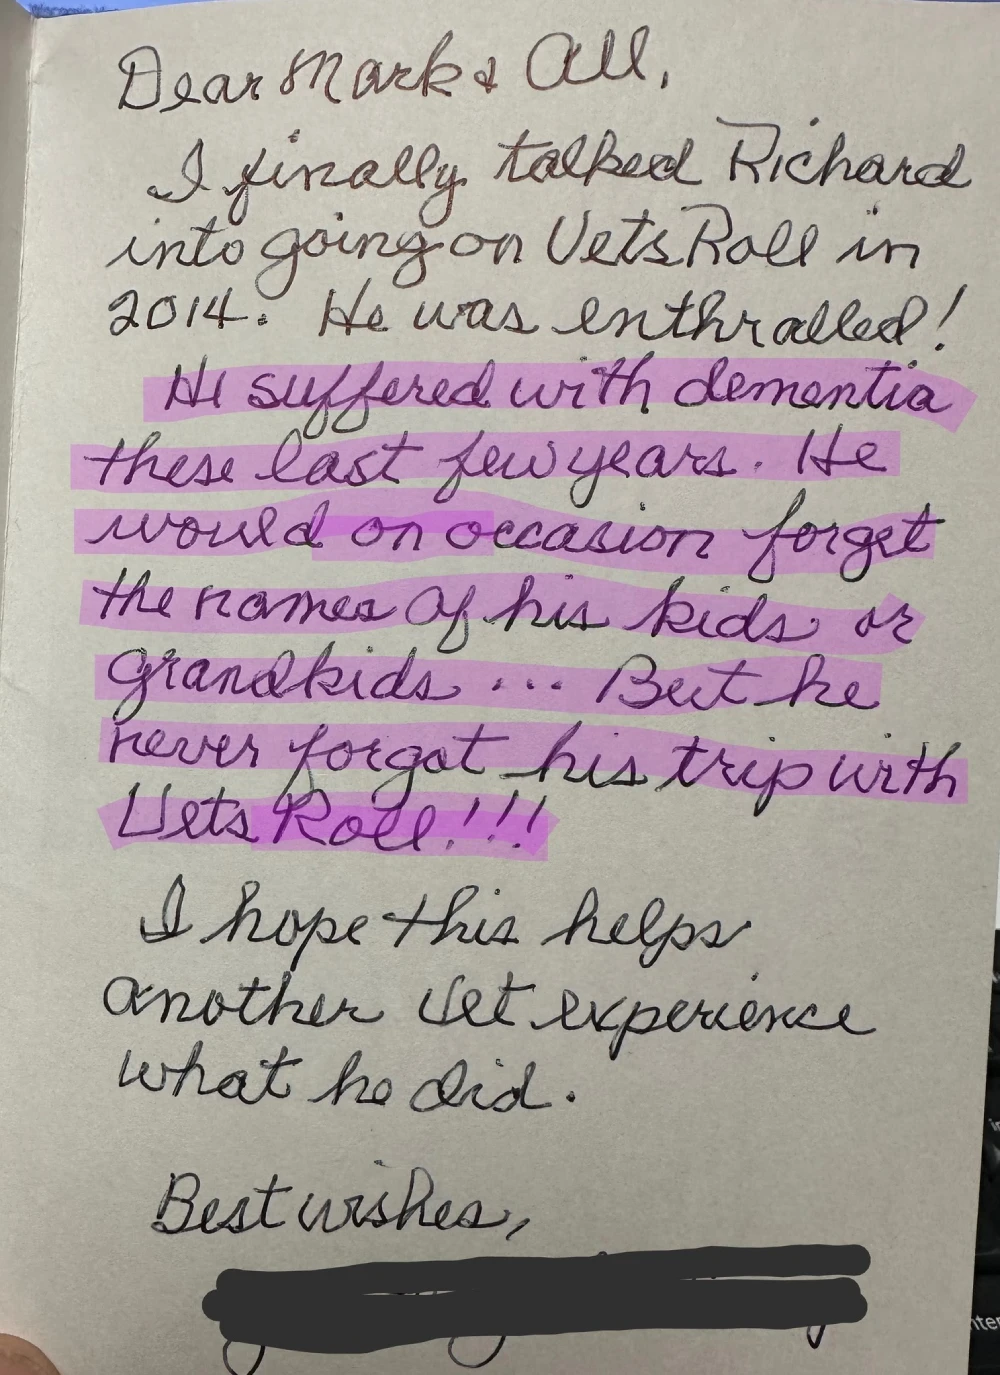 Dear Mark & All,
I finally talked Richard
into going on VetsRoll in
2014. He was enthralled!
He suffered with dementia
these last few years. He
would on occasion forget
the names of his kids or
grandkids ... But he
never forgot his trip with
VetsRoll!!!
I hope this helps
another Vet experience
what he did.
Best wishes,